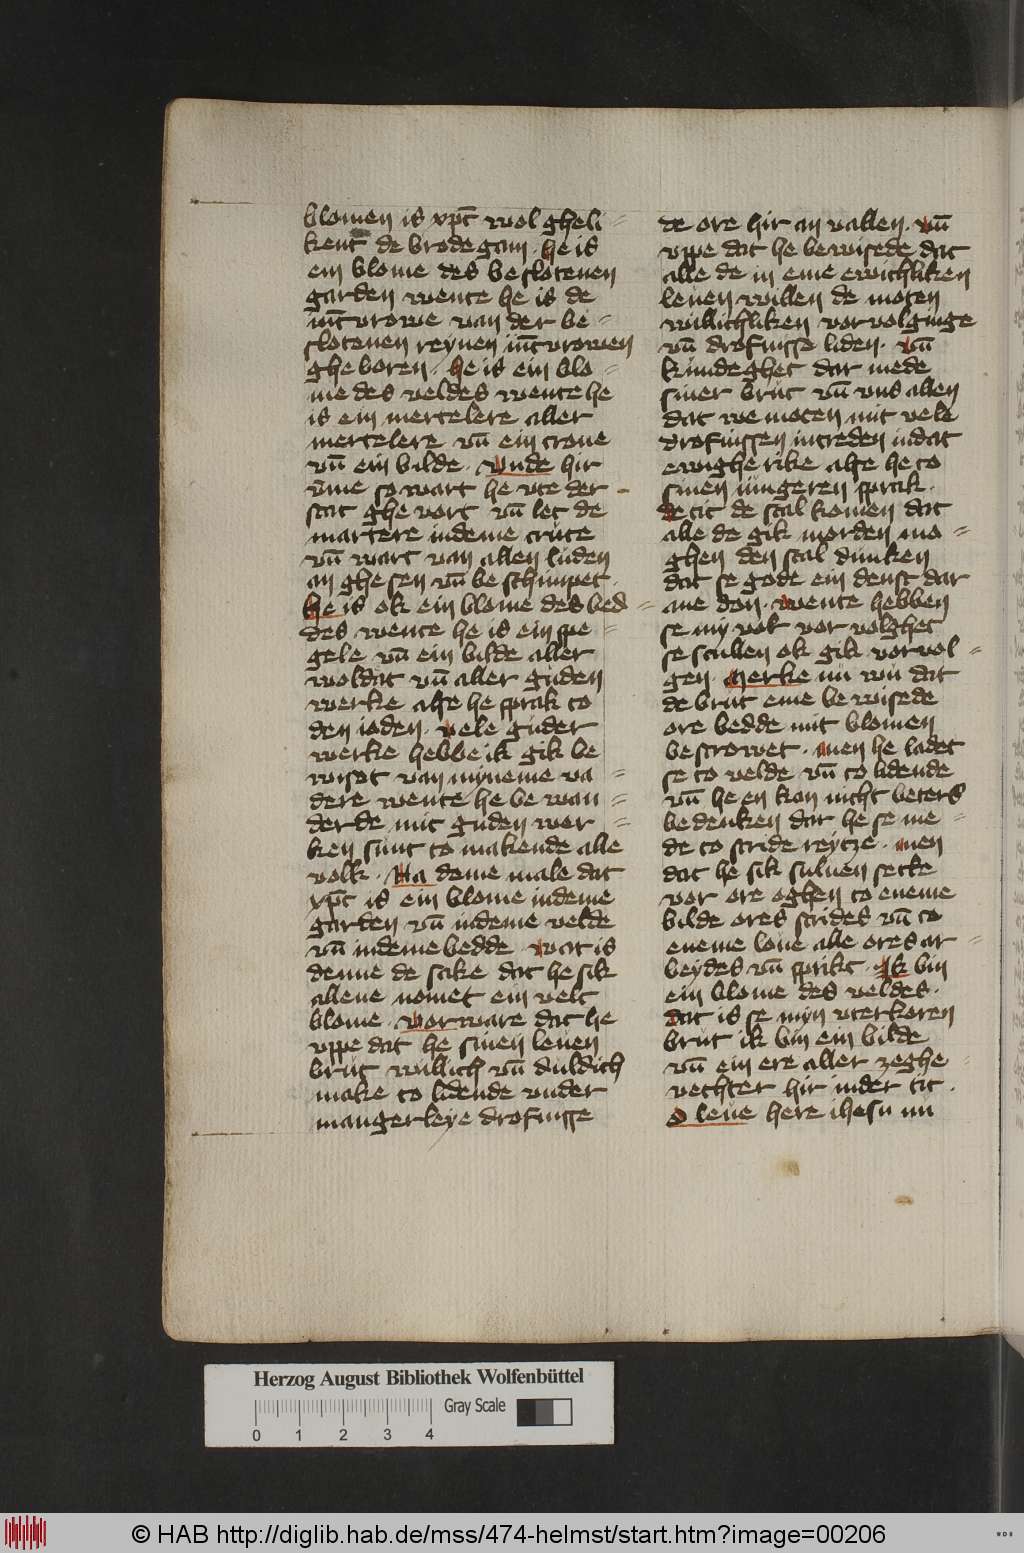 blomen is xpc̄ wol gheli=
kent de brodegam · he is
ein blome des beslotenen
garden wente he is de
iūcvrowe van der be=
slotenen reynen iūcvrowen
gheboren · he is ein blo=
me des veldes wente he
is ein mertelere aller
mertelere vn̄ ein crone
vn̄ ein bilde · Vnde hir
vm̄e so wart he vte der
stat ghe vort vn̄ let de
martere indeme crūce
vn̄ wart van allen lūden
an ghesen vn̄ beschimpet ·
he is ok ein blome des bed=
des wente he is ein spe=
gele vn̄ ein bilde aller
woldat vn̄ aller gūden
werke alse he sprak to
den ioden · vele guder
werke hebbe ik gik be
wiset van myneme va=
dere wente he be wan=
derde mit guden wer=
ken sunt to makende alle
volk · Na deme male dat
xpc̄ is ein blome indeme
garden vn̄ indeme velde
vn̄ indeme bedde · wat is
denne de sake dat he sik
allene nomet ein velt
blome · vorware dat he
vppe dat he sinen leuen
brūt willich vn̄ duldich
make to lidende vnder
mangerleye drofnisse
de ore hir an vallen · vn̄
vppe dat he bewisede dat
alle de in eme ewichliken
leuen willen de moten
willichliken vorvolginge
vn̄ drofnisse liden · vn̄
kundeghet dar mede
siner brūt vn̄ vns allen
dat we moten mit vele
drofnissen intreden indat
ewighe rike alse he to
sinen iūngeren sprak ·
de tit de scal komen dat
alle de gik morden mo=
ghen den scal dunken
dat se gode ein denst dar
ane don · wente hebben
se my vor volghet
se scullen ok gik vorvol=
gen · Merke nu wu dat
de brūt eme be wisede
ore bedde mit blomen
bestrowet · men he ladet
se to velde vn̄ to lidende
vn̄ he en kan nicht beters
bedenken dar he se me=
de to stride reytze · men
dat he sik suluen sette
vor ore oghen to eneme
bilde ores strides vn̄ to
eneme lone alle ores ar=
beydes vn̄ sprikt · Ik bin
ein blome des veldes ·
dat is se myn vterkoren
brūt ik bin ein bilde
vn̄ ein ere aller zeghe
vechter hir inder tit ·
O leue here ihesu nu
Herzog August Bibliothek Wolfenbüttel
Gray Scale
0 1 2 3 4
© HAB http://diglib.hab.de/mss/474-helmst/start.htm?image=00206